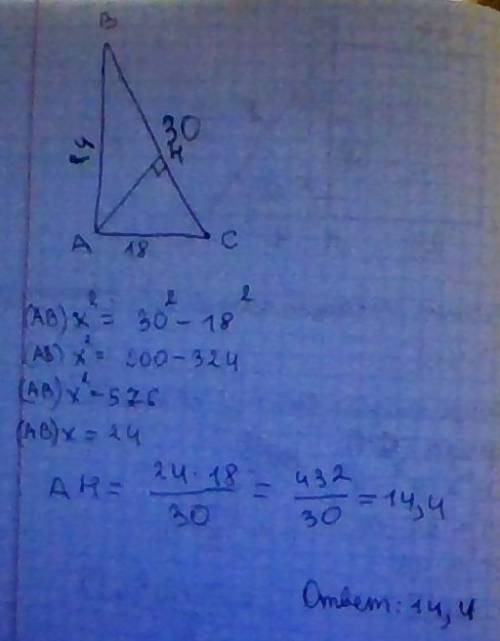 B
30
H
24
A
18
C
(AB) x² = 30² - 18²
(AB) x² = 200 - 324
(AB) x² = 576
(AB) x = 24
AH = 24 · 18 / 30 = 432 / 30 = 14,4
Ответ: 14,4